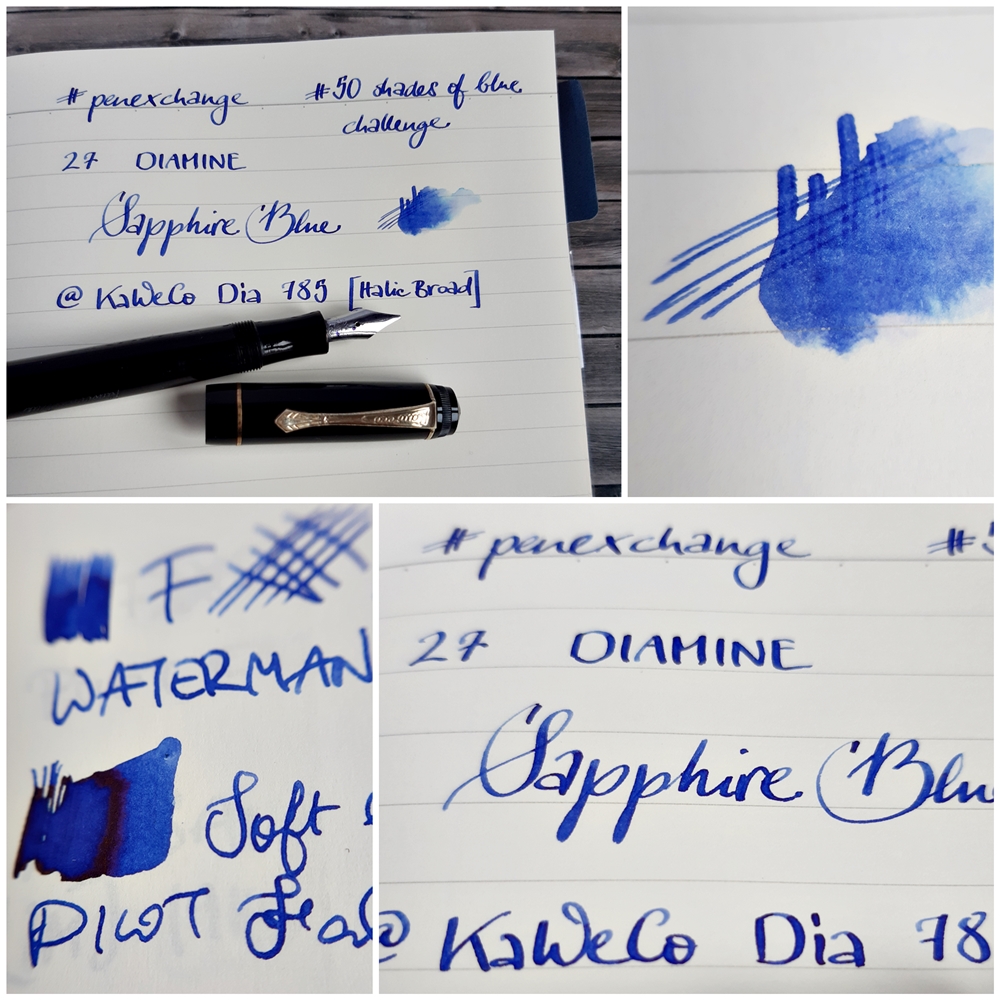 #penexchange #50 shades of blue
challenge
27 DIAMINE
Sapphire Blue
@ KaWeCo Dia 785 [Italic Broad]
F
WATERMAN
Soft
PILOT
#penexchange #5
27 DIAMINE
Sapphire Blue
@ KaWeCo Dia 78